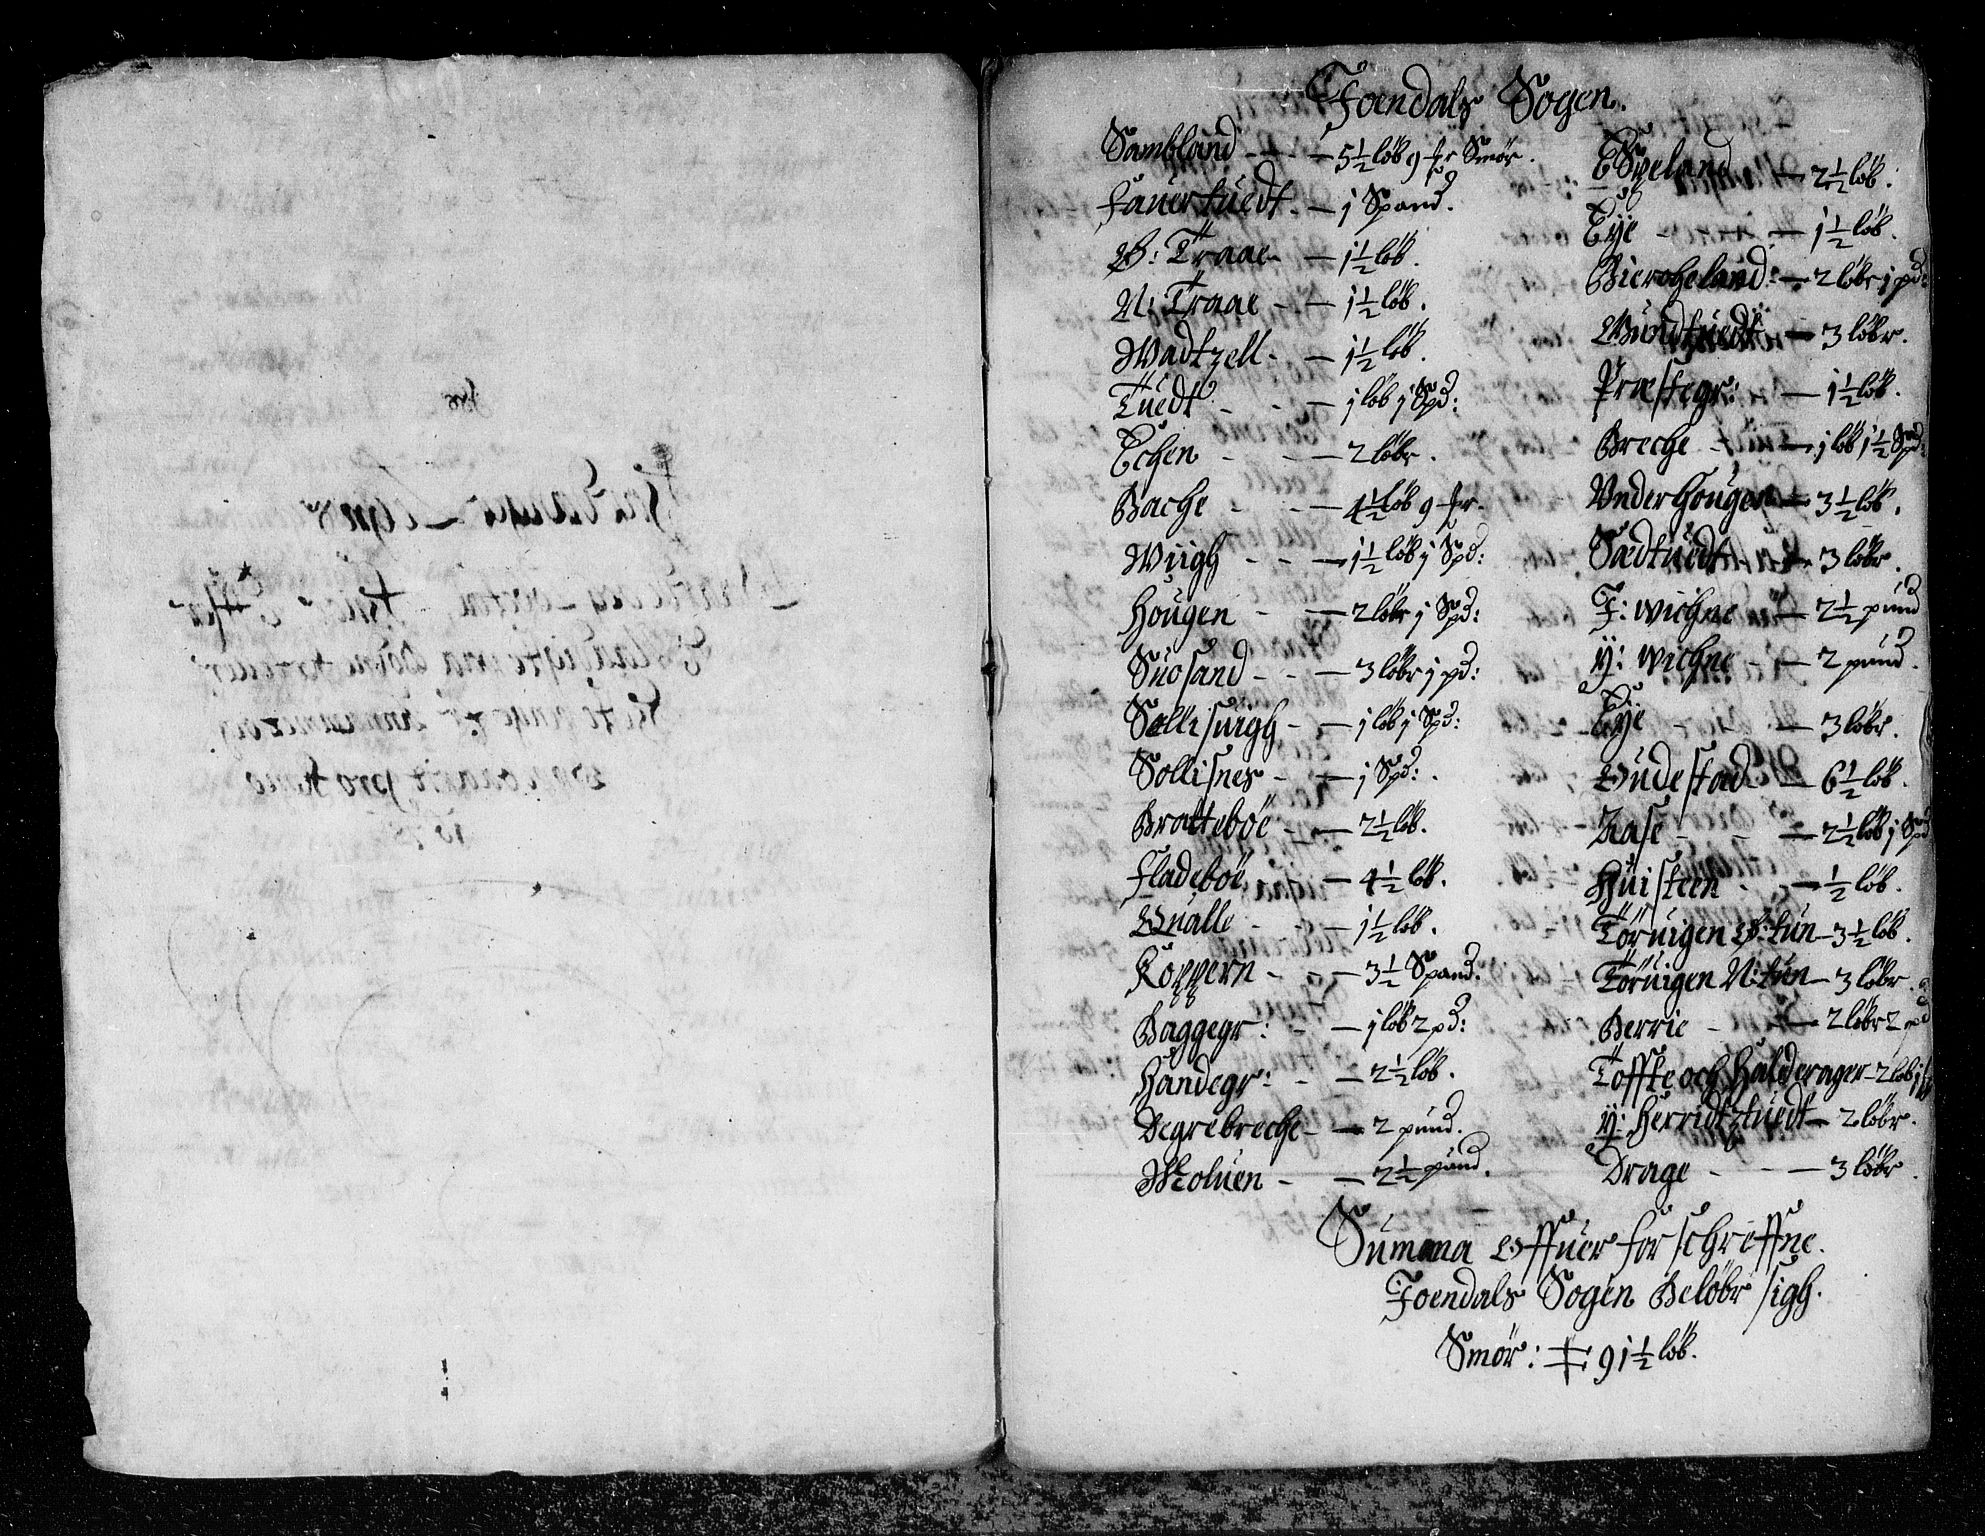 Joendals Sogen.
Sambland - - - 5 1/2 löb 9 mr Smör.
Fauertuedt. - j Spand.
Ø: Traae - - 1 1/2 löb.
N: Traae - - 1 1/2 löb.
Wadtzell - - 1 1/2 löb.
Tuedt - - - j löb j Spd:
Echen - - - 2 löbr.
Bache - - - 4 1/2 löb 9 mr.
Wiigh - - - 1 1/2 löb j Spd:
Hougen - - 2 löbr j Spd:
Suosand - - - 3 löbr j pd:
Sellisuigh - - j löb j Spd:
Sollisnes - - j Spd:
Bratteböe - - 2 1/2 löb.
Fladeböe - - 4 1/2 löb.
Qualle - - - 1 1/2 löb.
Koppern - - - 3 1/2 Spand.
Baggegr: - - j löb 2 pd:
Handegr: - - 2 1/2 löb.
Degrebreche - - 2 pund.
Moluen - - 2 1/2 pund.
Espeland - 2 1/2 löb.
Eÿe - - - 1 1/2 löb.
Biercheland: - 2 löbr j pd:
Wundtuedt - 3 löbr.
Præstegr: - 1 1/2 löb.
Breche - - j löb 1 1/2 Spd:
Vnderhougen - 3 1/2 löb.
Sædtuedt - 3 löbr.
J: wichne - 2 1/2 pund
Ÿ: wichne - - 2 pund.
Eÿe - - 3 löbr.
Gudestad - 6 1/2 löb.
Aase - - - 2 1/2 löb j Spd
Huisteen - - 1/2 löb.
Töruigen Ø: tun - 3 1/2 löb.
Töruigen N: tun - 3 löbr.
Berrie - - 2 löbr 2 pd
Toffte och Halderager - 2 löb j
Ÿ: Herridtztuedt - 2 löbr.
Drage - - - 3 löbr
Summa Offuer forschreffne.
Joendals Sogen Belöbr sigh.
Smör: 91 1/2 löb.